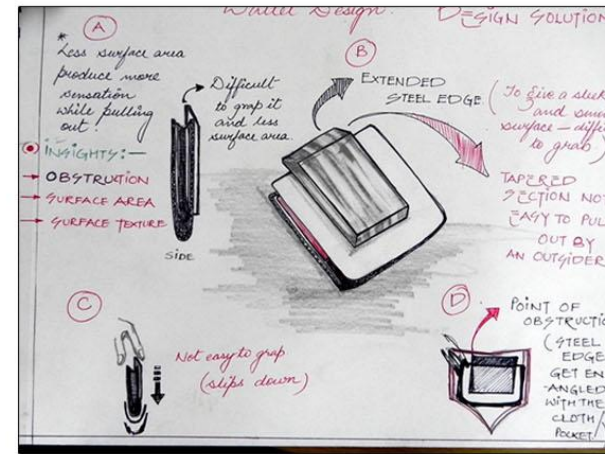 Wallet Design.
DESIGN SOLUTION
A
* Less surface area
produce more
sensation
while pulling
out!
Difficult
to grap it
and less
surface area.
INSIGHTS:-
OBSTRUCTION
SURFACE AREA
SURFACE TEXTURE
SIDE
B
EXTENDED
STEEL EDGE
(To give a sleek
and smo
surface - diffi
to grab)
TAPERED
SECTION NO
EASY TO PUL
OUT BY
AN OUTSIDER
C
Not easy to grap
(slips down)
D
POINT OF
OBSTRUCTIO
(STEEL
EDGE
GET EN
-ANGLED
WITH THE
CLOTH/
POCKET